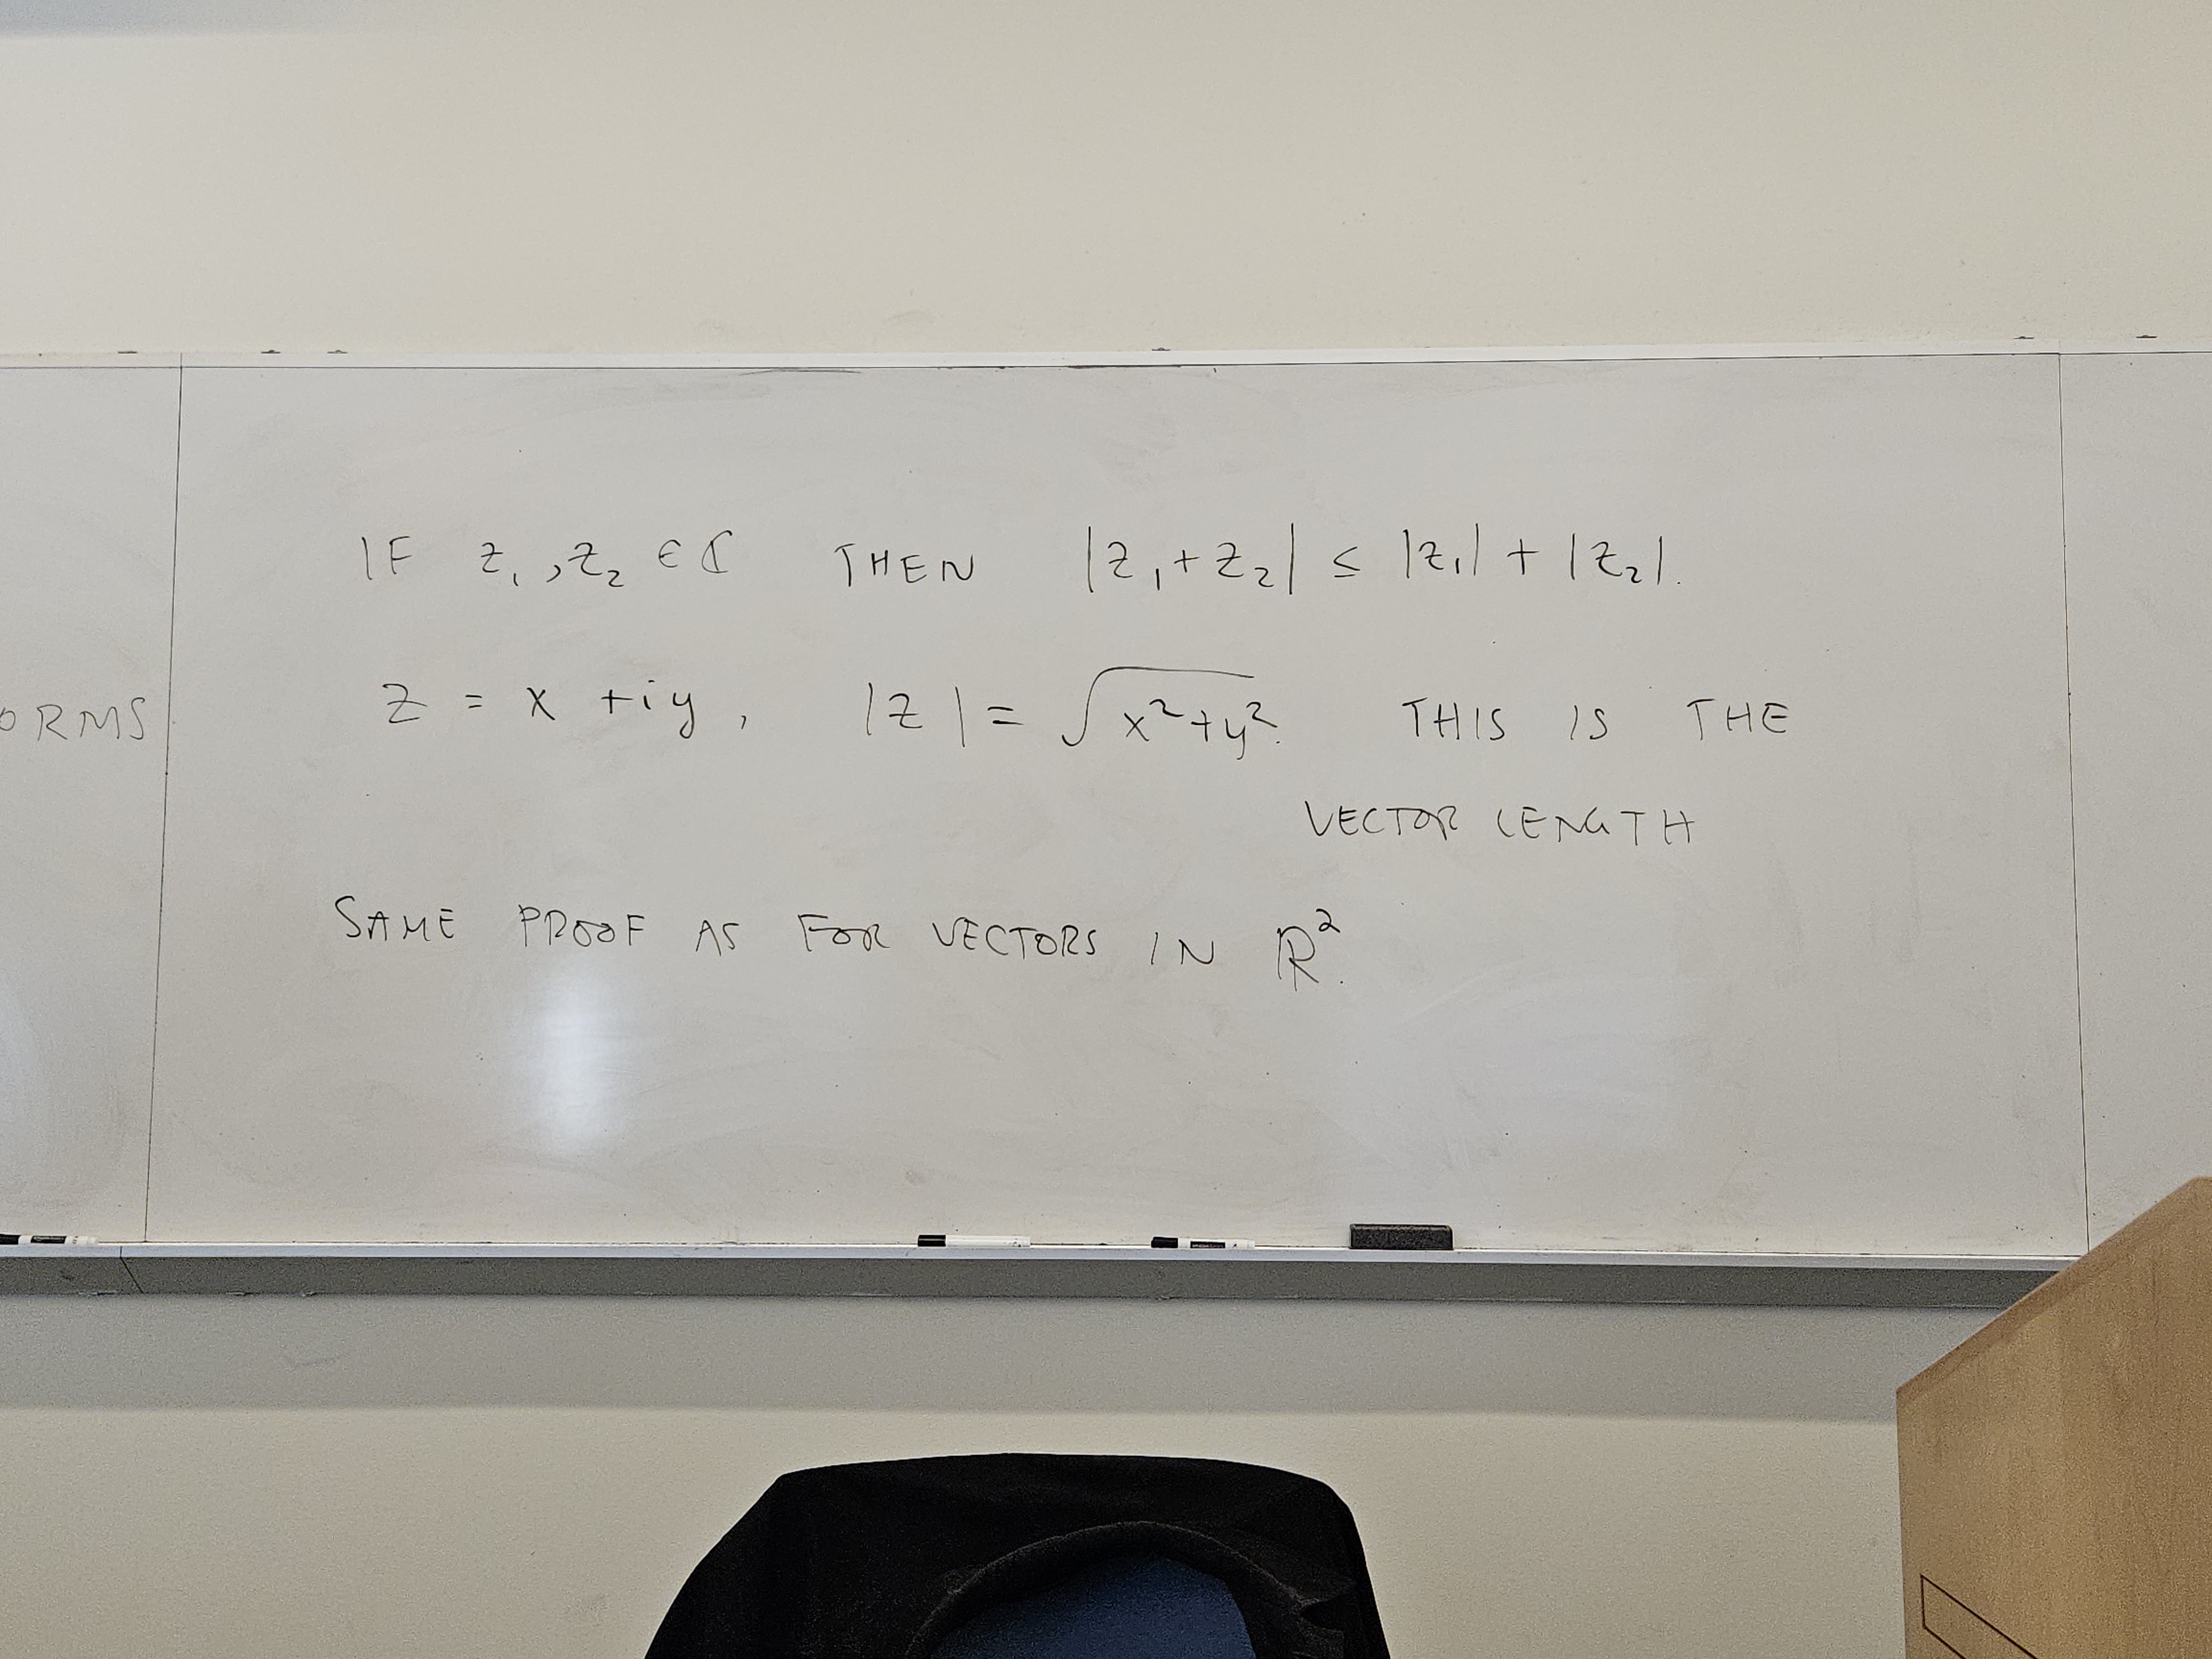 IF z₁, z₂ ∈ ℂ THEN |z₁+z₂| ≤ |z₁| + |z₂|.
ORMS
z = x + iy, |z| = √(x²+y²). THIS IS THE
VECTOR LENGTH
SAME PROOF AS FOR VECTORS IN ℝ².